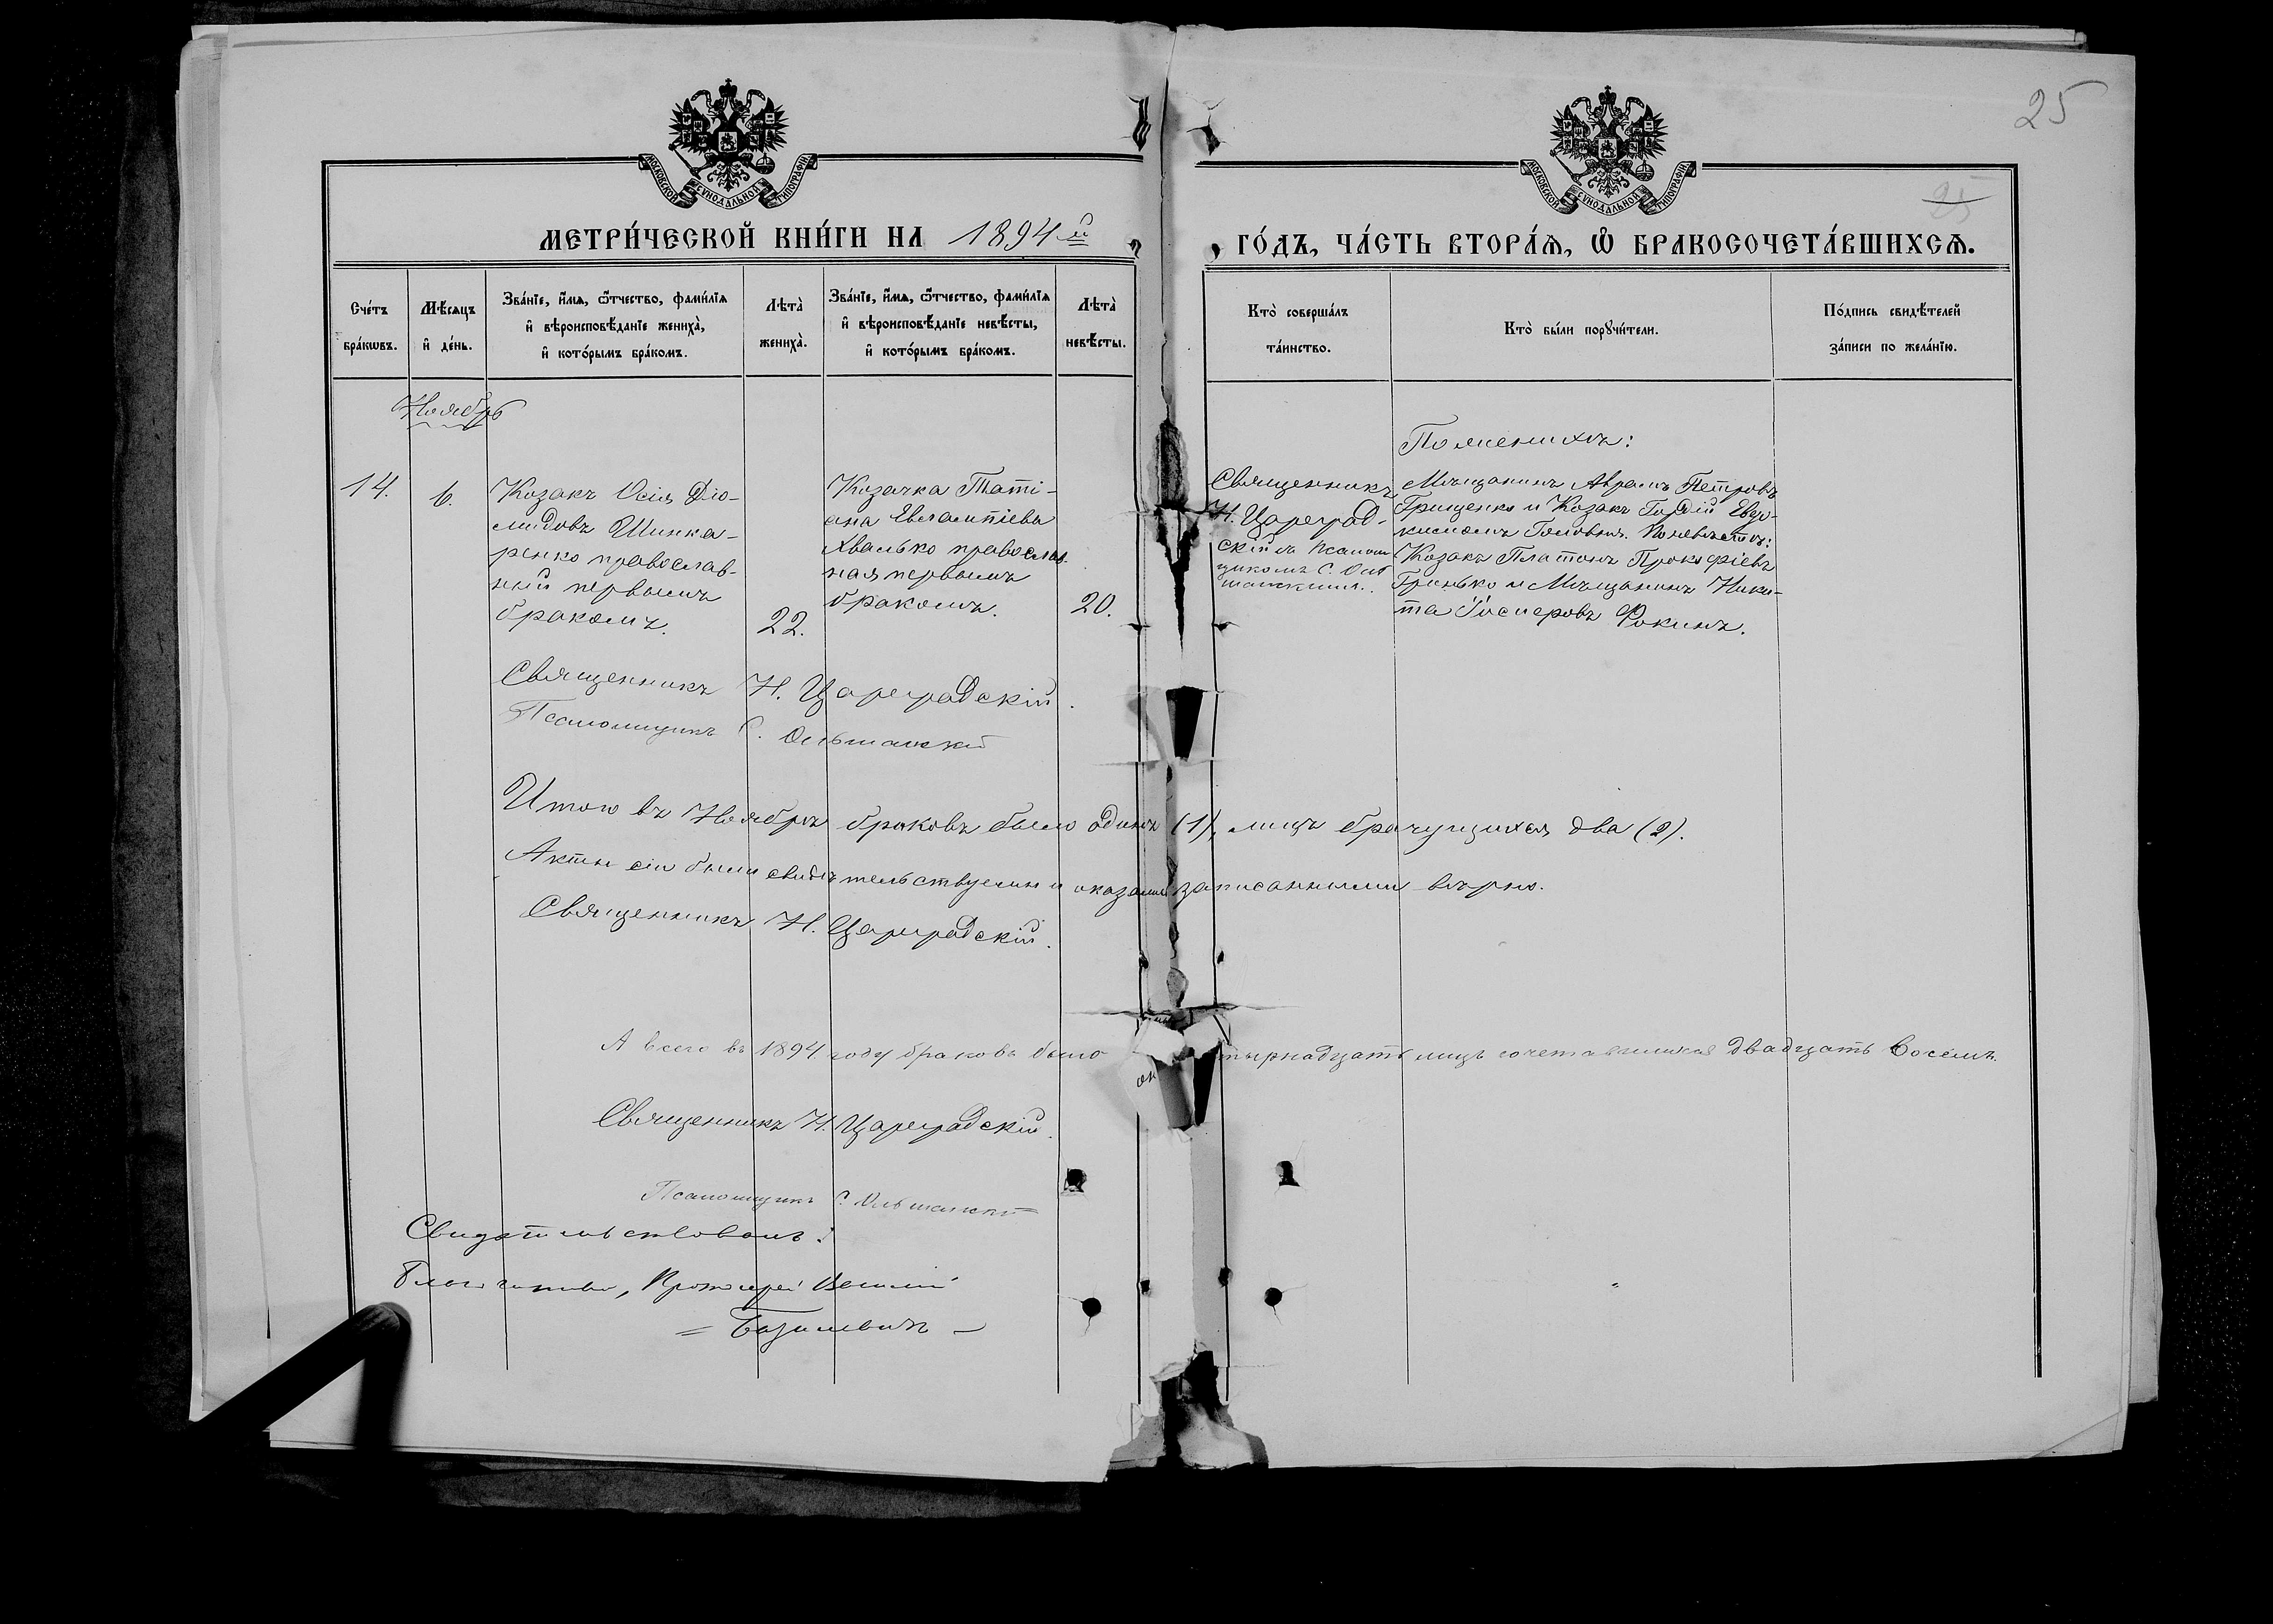 25
25
МОСКОВСКОЙ СУНОДАЛЬНОЙ ТИПОГРАФІИ
МОСКОВСКОЙ СУНОДАЛЬНОЙ ТИПОГРАФІИ
МЕТРИ́ЧЕСКОЙ КНИ́ГИ НА 1894 й
ГО́ДЪ, ЧА́СТЬ ВТОРА́Ѧ, Ѽ БРАКОСОЧЕТА́ВШИХСѦ.
Сче́тъ
бра́кѡвъ.
Мѣ́сѧцъ
и҆ де́нь.
Зва́нїе, и҆́мѧ, ѻ҆́тчество, фами́лїѧ
и҆ вѣроисповѣ́данїе жениха̀,
и҆ кото́рымъ бра́комъ.
Лѣта̀
жениха̀.
Зва́нїе, и҆́мѧ, ѻ҆́тчество, фами́лїѧ
и҆ вѣроисповѣ́данїе невѣ́сты,
и҆ кото́рымъ бра́комъ.
Лѣта̀
невѣ́сты.
Кто̀ соверша́лъ
та́инство.
Кто̀ бы́ли порꙋчи́тели.
По́дпись свидѣ́телей
за́писи по жела́нїю.
Ноябрь
14.
6.
Козакъ Осія Діо-
мидовъ Шинка-
ренко православ-
ный первымъ
бракомъ.
22.
Козачка Таті-
ана Евлампіева
Хвалько православ-
ная первымъ
бракомъ.
20.
Священникъ
Н. Цареград-
скій съ Псалом
щикомъ С. Оль
шанскимъ.
По женихѣ:
Мѣщанинъ Аврамъ Петровъ
Грищенко и Козакъ Гордій Евдо-
кимовъ Головня. По невѣстѣ:
Козакъ Платонъ Прокофіевъ
Гринько и Мѣщанинъ Ники-
та Фокинъ.
Священникъ Н. Цареградскій.
Псаломщикъ С. Ольшанскій
Итого въ Ноябрѣ браковъ было одинъ (1), лицъ брачущихся два (2).
Акты сіи были свидѣтельствуемы и оказались записанными вѣрно.
Священникъ Н. Цареградскій.
А всего въ 1894 году браковъ было тырнадцать лицъ сочетавшихся двадцать восемь.
Священникъ Н. Цареградскій.
Псаломщикъ С. Ольшанскій
Свидѣтельствовалъ:
Благочинный, Протоіерей
Базилевичъ